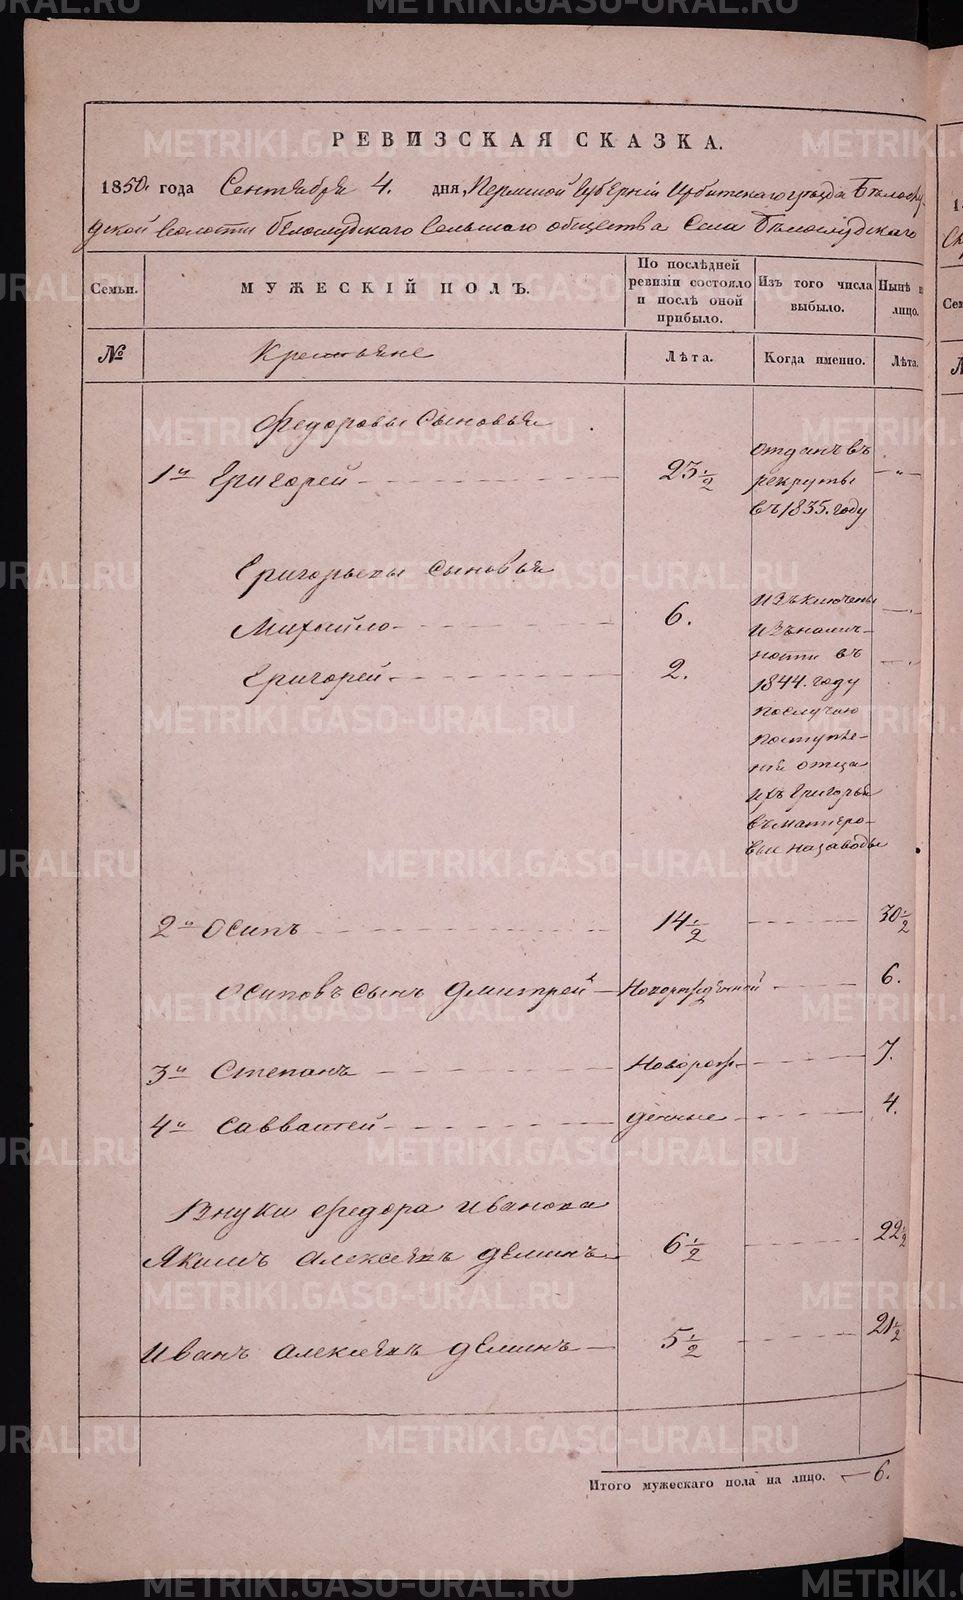 РЕВИЗСКАЯ СКАЗКА.
1850. года Сентября 4. дня, Пермской Губерніи Ирбитскаго уѣзда Бѣлослу-
дской волости Белослудского сельскаго общества Села Бѣлослудскаго
Семьи.
МУЖЕСКІЙ ПОЛЪ.
По послѣдней
ревизіи состояло
и послѣ оной
прибыло.
Изъ того числа
выбыло.
Нынѣ
лицо.
№
Крестьяне
Лѣта.
Когда именно.
Лѣта.
Федоровы сыновья
1й Григорей 23 1/2 отданъ въ
рекруты
въ 1835. году
Григорьевы сыновья
Михайло 6.
Григорей 2.
Изъключены
изъ налич-
ности въ
1844. году
послучаю
поступле-
нія отца
ихъ Григорья
въ мастеро-
вые на заводы
2й Осипъ 14 1/2 30 1/2
Осиповъ сынъ Дмитрей Новорожденной 6.
3й Степанъ Новорож- 7.
4й Савватей денные 4.
Внуки Федора Иванова
Якимъ Алексеевъ Деминъ 6 1/2 22 1/2
Иванъ Алексеевъ Деминъ 5 1/2 21 1/2
Итого мужескаго пола на лицо. 6.
METRIKI.GASO-URAL.RU